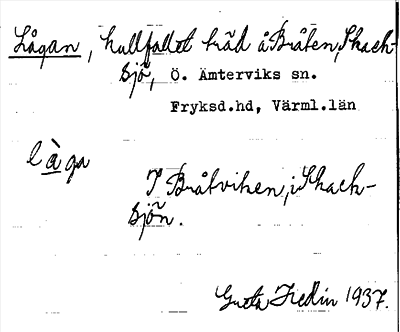 Lågan, kullfallet träd å Bråten, Skack-
sjö, Ö. Ämterviks sn.
Fryksd.hd, Värml.län
l à ga
I Bråtviken, i Skack-
sjön.
Gusta Fredin 1937.